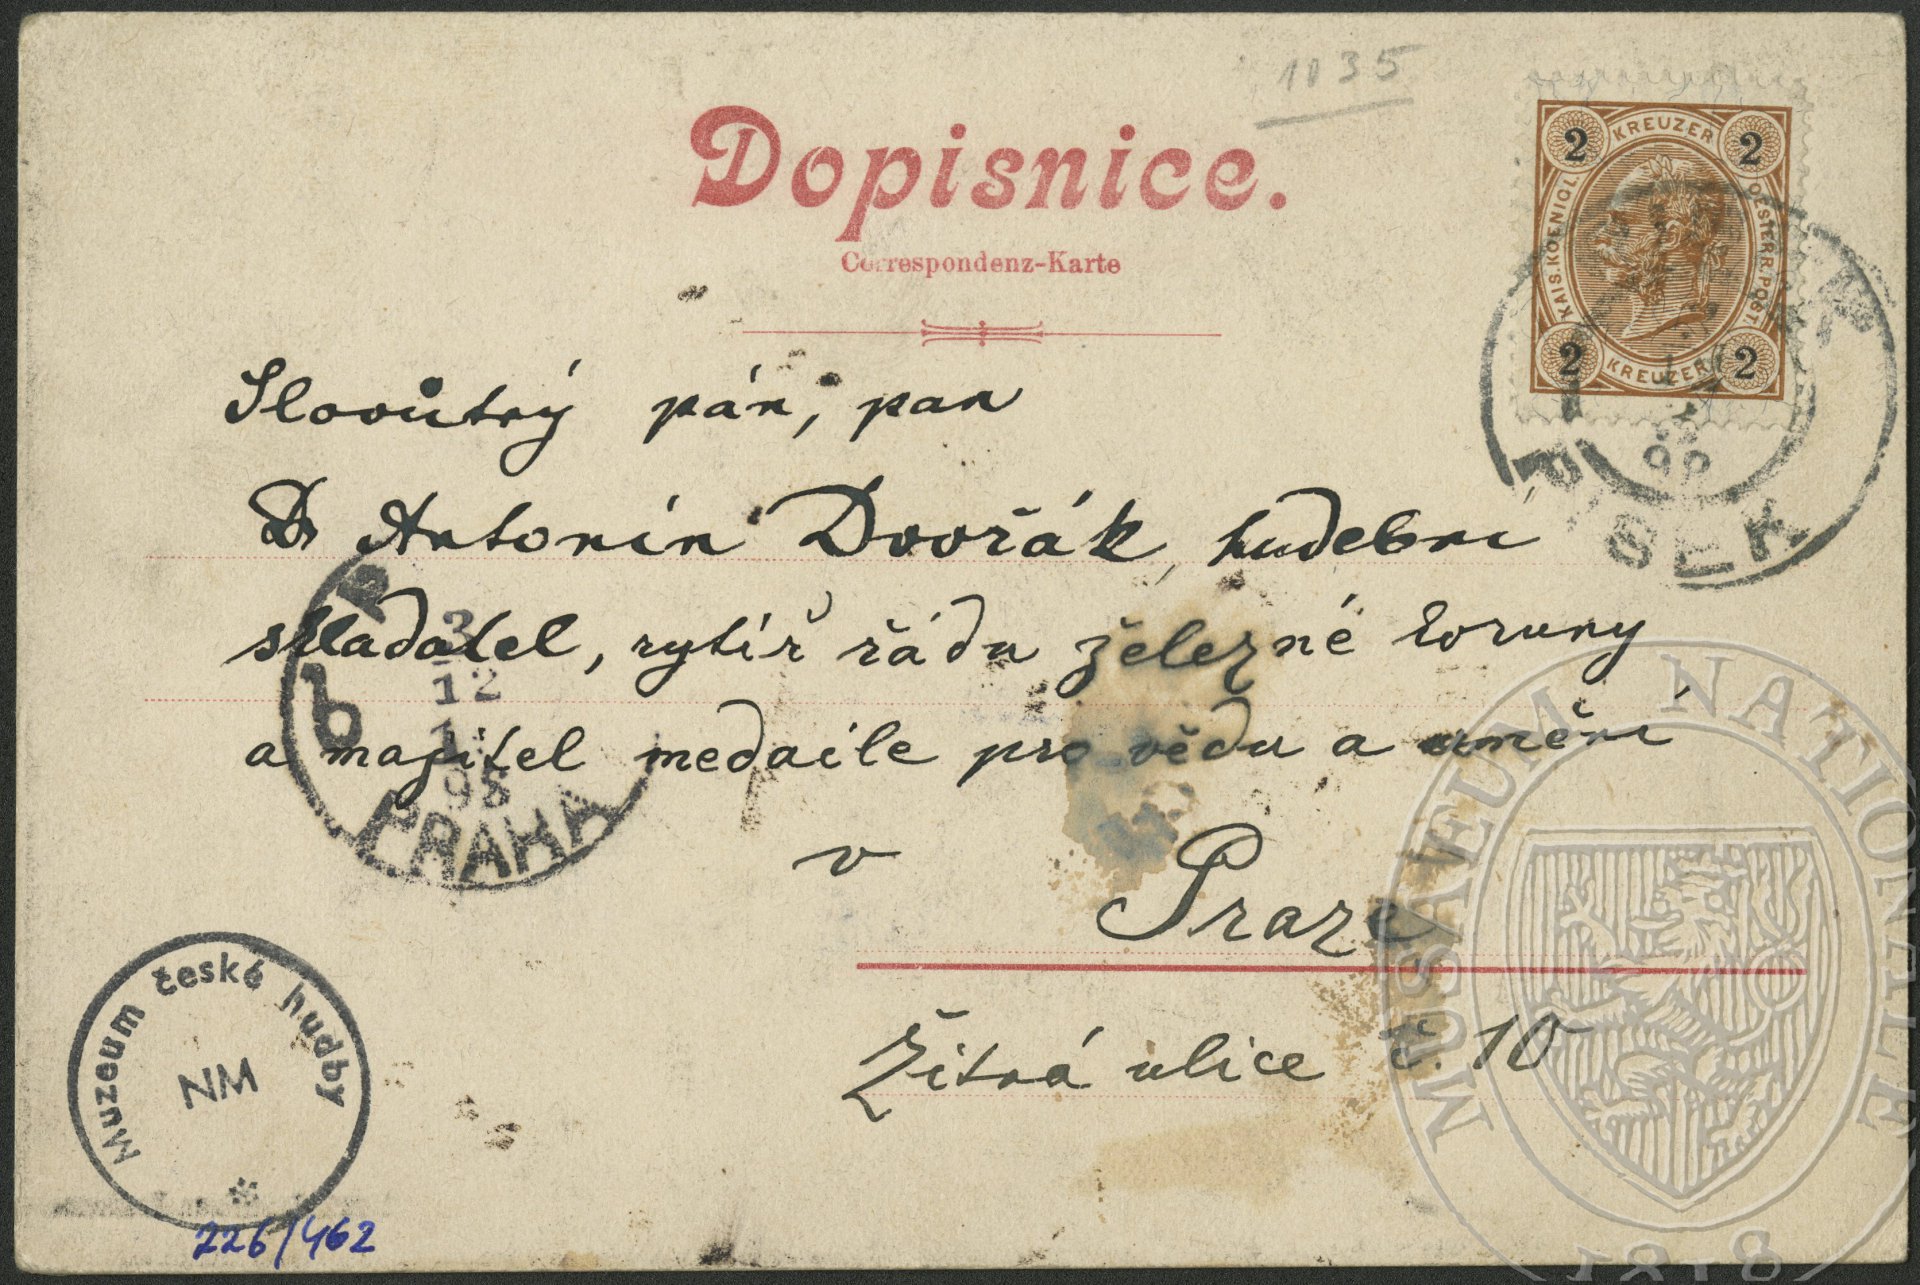 1035
Dopisnice.
Correspondenz-Karte
2 KREUZER 2
KAIS. KOENIGL. OESTERR. POST.
2 KREUZER 2
PISEK
98
Slovůtný pán, pan
Dr Antonín Dvořák, hudební
skladatel, rytíř řádu železné koruny
a majitel medaile pro vědu a umění
v Praze
Žitná ulice č. 10
3
12
98
PRAHA
Muzeum české hudby
NM
226/462
MUSAEUM NATIONALE
1818